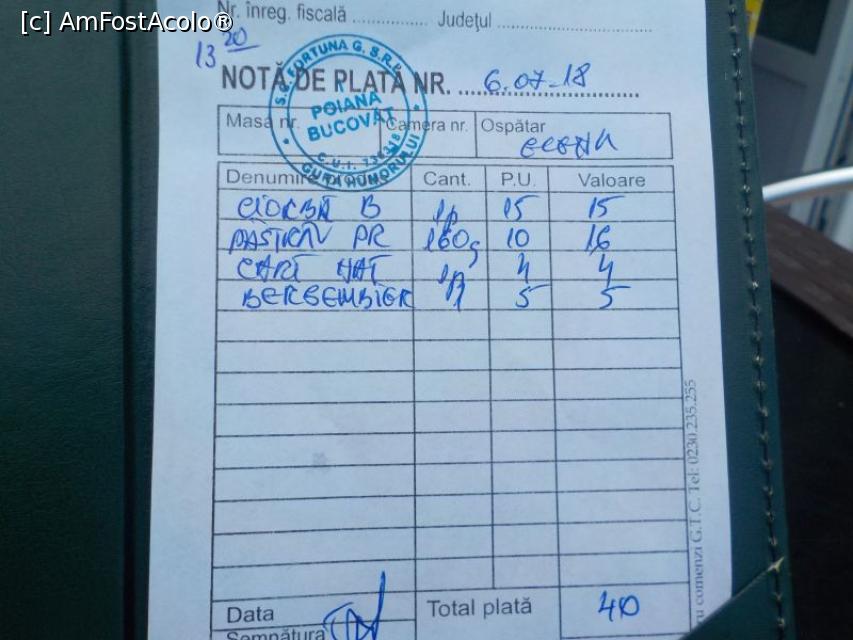 [c] AmFostAcolo®
Nr. înreg. fiscală .............. Județul ......................
13 20
NOTĂ DE PLATĂ NR. 6.07-18
S.C. FORTUNA G. S.R.L.
POIANA
BUCOVĂȚ
C.U.I.
GURA HUMORULUI
Masa nr. Camera nr. Ospătar
ELENA
Denumire Cant. P.U. Valoare
CIORBĂ B 1p 15 15
PĂSTRĂV PR 160g 10 16
CART NAT 1p 4 4
BERGENBIER 1 5 5
Data
Total plată 40
Semnătura
comenzi G.T.C. Tel: 0230.235.255